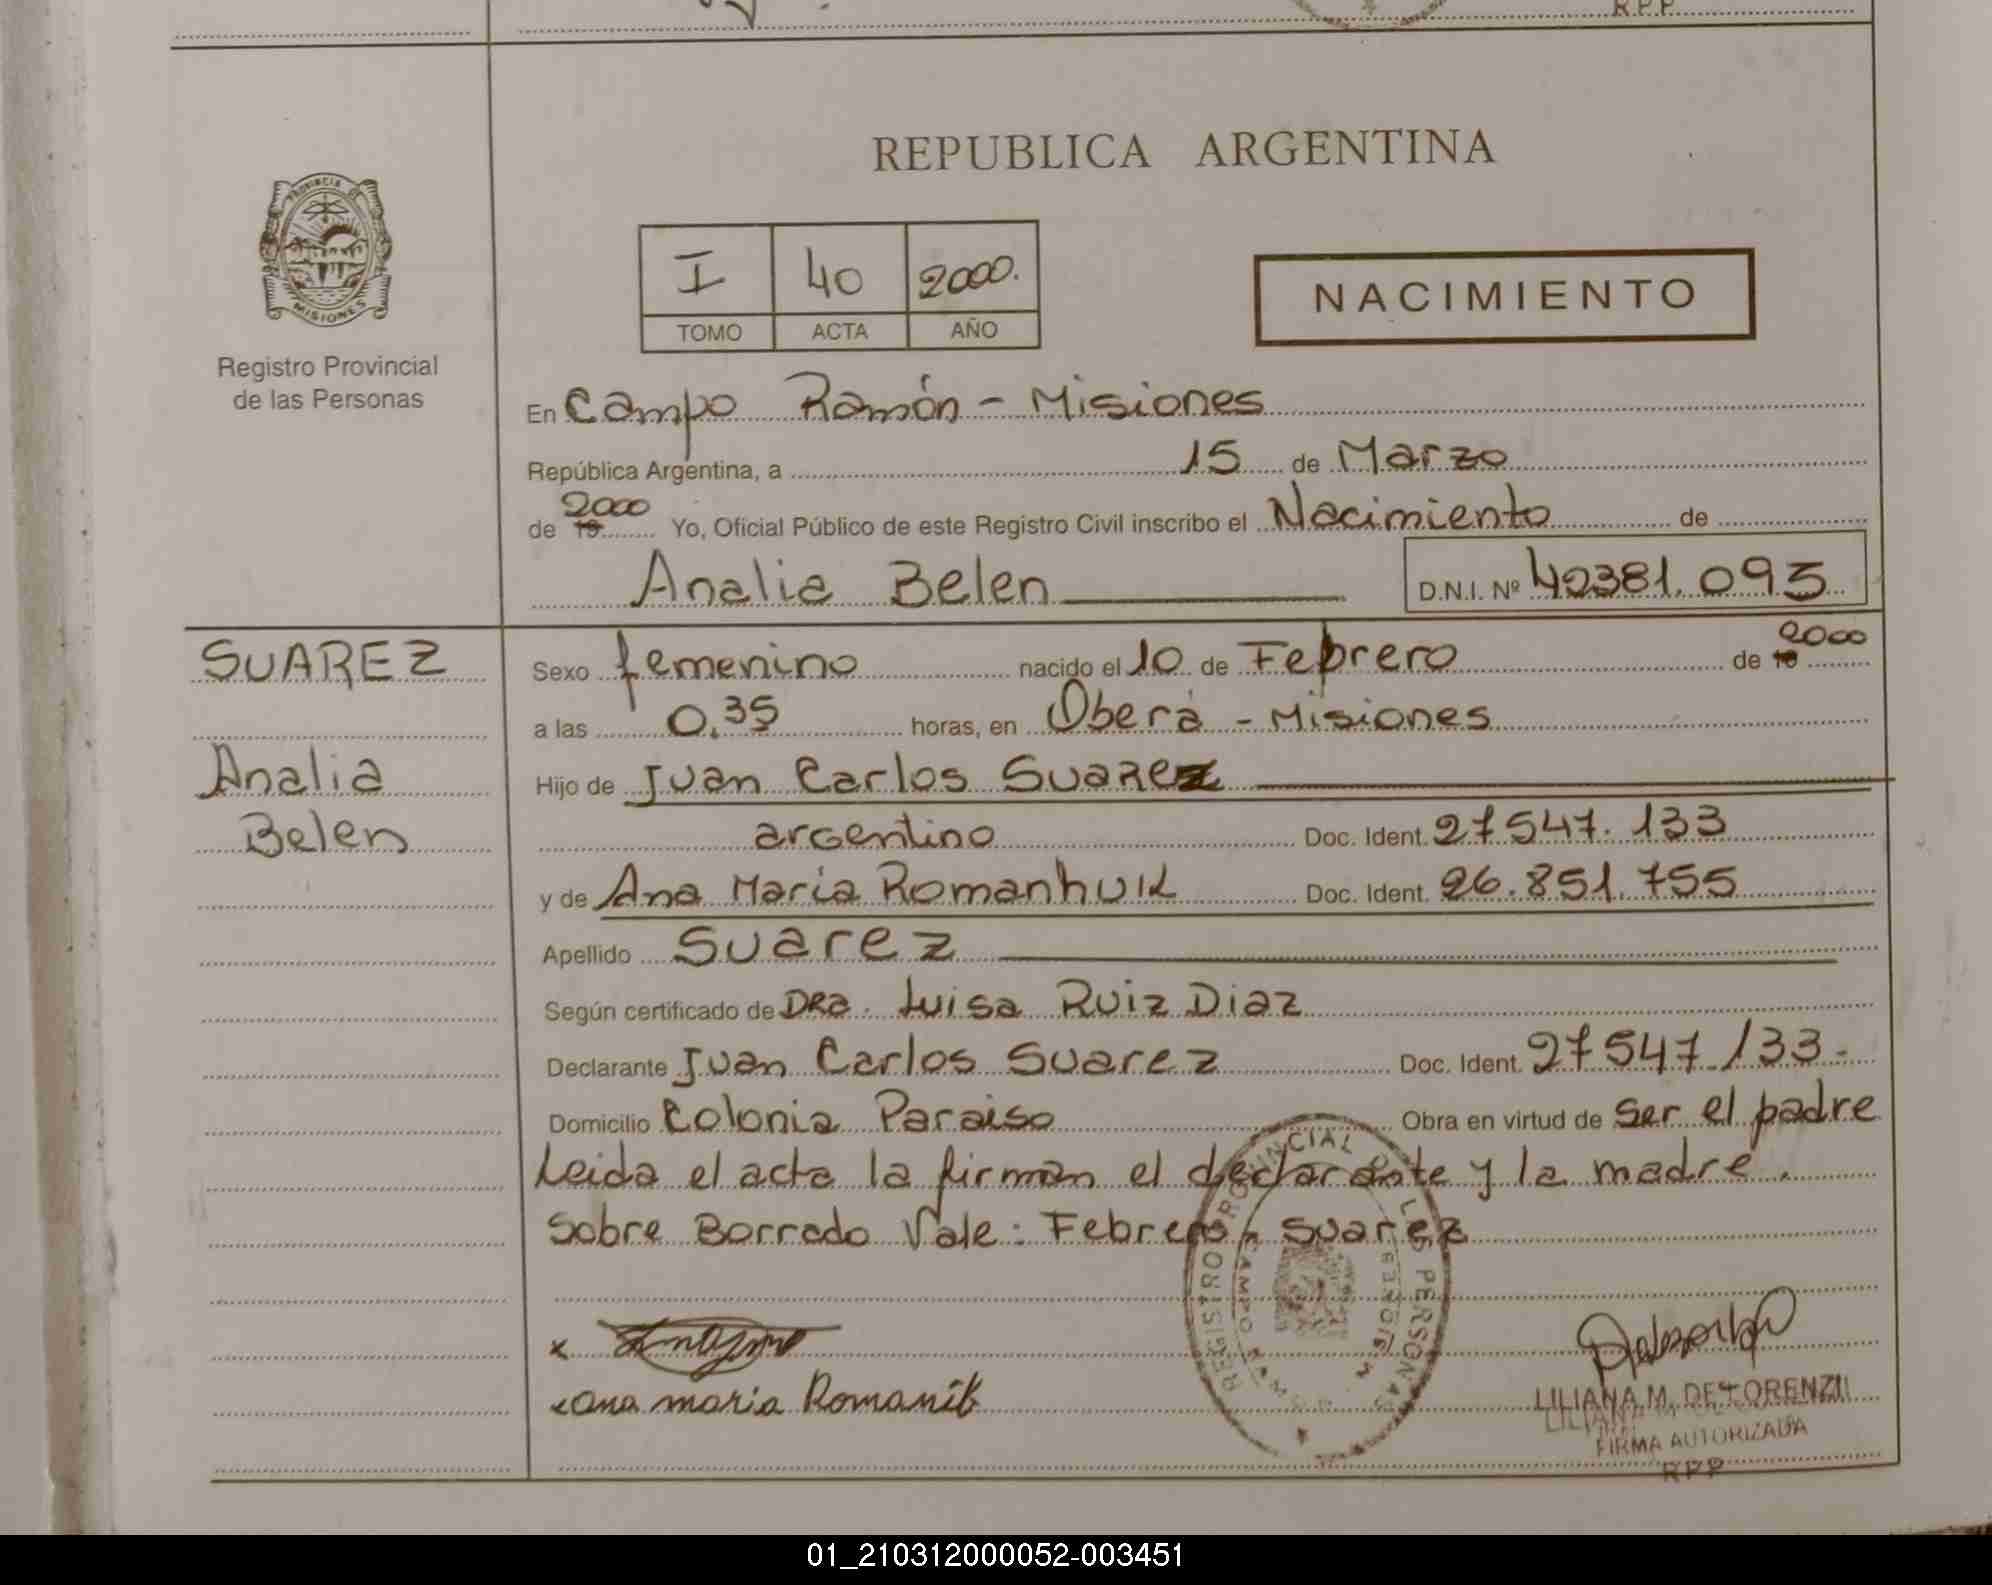 RPP
REPUBLICA ARGENTINA
PROVINCIA DE
MISIONES
Registro Provincial
de las Personas
I 40 2000.
TOMO ACTA AÑO
NACIMIENTO
En Campo Ramón - Misiones
República Argentina, a 15 de Marzo
de 19 2000 Yo, Oficial Público de este Registro Civil inscribo el Nacimiento de
Analia Belen D.N.I. Nº 42381.095
SUAREZ
Analia
Belen
Sexo femenino nacido el 10 de Febrero de 19 2000
a las 0,35 horas, en Oberá - Misiones
Hijo de Juan Carlos Suarez
argentino Doc. Ident. 27547.133
y de Ana María Romanhuk Doc. Ident. 26.851.755
Apellido Suarez
Según certificado de Dra. Luisa Ruiz Diaz
Declarante Juan Carlos Suarez Doc. Ident. 27547.133-
Domicilio Colonia Paraiso Obra en virtud de ser el padre
Leida el acta la firman el declarante y la madre.
Sobre Borrado Vale: Febrero, Suarez
REGISTRO PROVINCIAL DE LAS PERSONAS
CAMPO RAMON MISIONES
x
x ana maria Romanik
LILIANA M. DE LORENZI
FIRMA AUTORIZADA
RPP
01_210312000052-003451